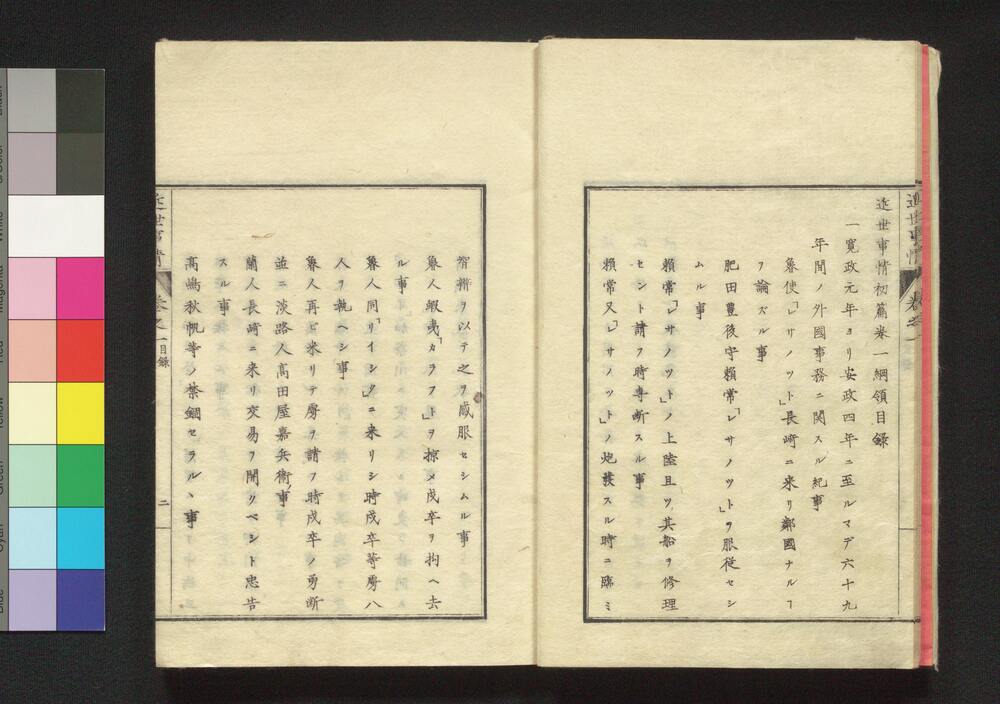 近世事情初篇巻一綱領目録
一寛政元年ヨリ安政四年ニ至ルマデ六十九
年間ノ外國事務ニ関スル紀事
魯使「レサノツト」長崎ニ来リ鄰國ナルヿ
ヲ論ズル事
肥田豊後守頼常「レサノツト」ヲ服従セシ
ムル事
頼常「レサノツト」ノ上陸且ツ其船ヲ修理
セント請フ時専断スル事
頼常又「レサノツト」ノ炮發スル時ニ臨ミ
ヲ以テ之ヲ感服セシムル事
魯人蝦夷「カラフト」ヲ掠メ戍卒ヲ拘ヘ去
ル事
魯人同「リイシリ」ニ来リシ時戍卒等虜八
人ヲ執ヘシ事
魯人再ビ来リテ虜ヲ請フ時戍卒ノ勇断
並ニ淡路人高田屋嘉兵衛ノ事
蘭人長崎ニ来リ交易ヲ開クベシト忠告
スル事
高嶋秋帆等ノ禁錮セラルヽ事
近世事情
巻之一目録
二